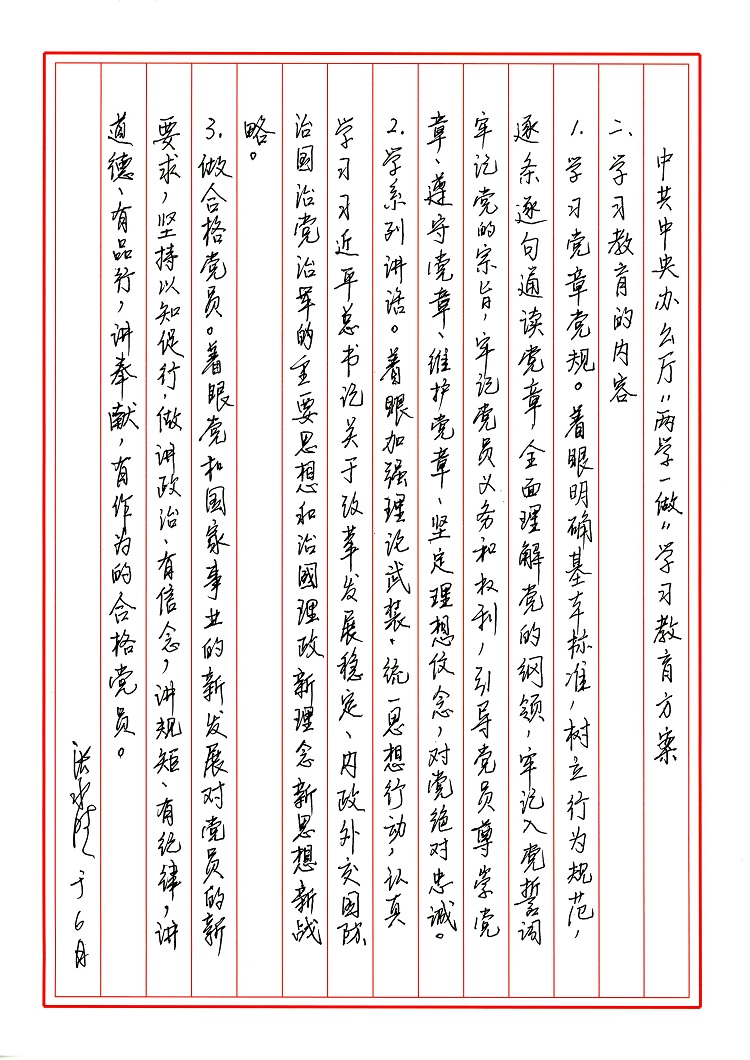 中共中央办公厅“两学一做”学习教育方案
二、学习教育的内容
1.学习党章党规。着眼明确基本标准,树立行为规范,
逐条逐句通读党章全面理解党的纲领,牢记入党誓词
牢记党的宗旨,牢记党员义务和权利,引导党员尊崇党
章、遵守党章、维护党章、坚定理想信念,对党绝对忠诚。
2.学系列讲话。着眼加强理论武装、统一思想行动,认真
学习习近平总书记关于改革发展稳定、内政外交国防
治国治党治军的重要思想和治國理政新理念新思想新战
略。
3.做合格党员。着眼党和国家事业的新发展对党员的新
要求,坚持以知促行,做讲政治、有信念,讲规矩、有纪律,讲
道德、有品行,讲奉献,有作为的合格党员。
于6月